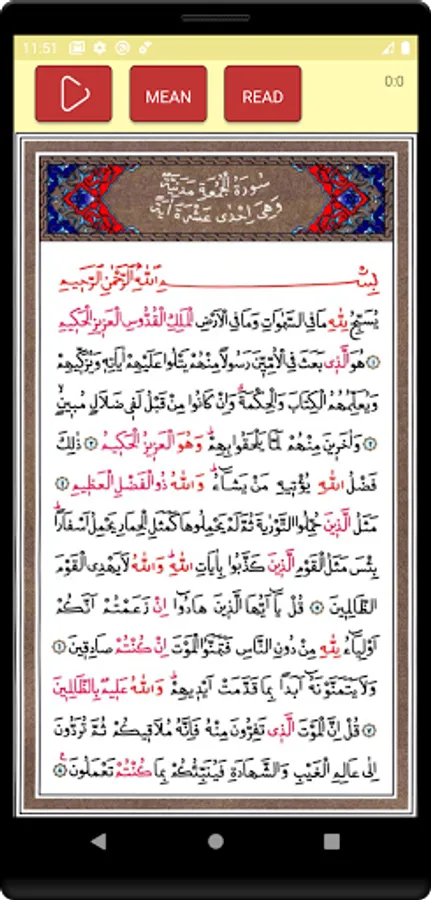 11:51
MEAN
READ
0:0
سُورَةُ الْجُمُعَةِ مَدَنِيَّةٌ
وَهِيَ اِحْدٰى عَشْرَةَ اٰيَةً
بِسْمِ اللّٰهِ الرَّحْمٰنِ الرَّحِيمِ
يُسَبِّحُ لِلّٰهِ مَا فِي السَّمٰوَاتِ وَمَا فِي الْاَرْضِ الْمَلِكِ الْقُدُّوسِ الْعَزِيزِ الْحَكِيمِ
﴿١﴾ هُوَ الَّذِي بَعَثَ فِي الْاُمِّيّٖنَ رَسُولًا مِنْهُمْ يَتْلُوا عَلَيْهِمْ اٰيَاتِهٖ وَيُزَكّٖيهِمْ
وَيُعَلِّمُهُمُ الْكِتَابَ وَالْحِكْمَةَ وَاِنْ كَانُوا مِنْ قَبْلُ لَفٖي ضَلَالٍ مُبٖينٍ
﴿٢﴾ وَاٰخَرٖينَ مِنْهُمْ لَمَّا يَلْحَقُوا بِهِمْ وَهُوَ الْعَزٖيزُ الْحَكٖيمُ ﴿٣﴾ ذٰلِكَ
فَضْلُ اللّٰهِ يُؤْتٖيهِ مَنْ يَشَاءُ وَاللّٰهُ ذُو الْفَضْلِ الْعَظٖيمِ ﴿٤﴾
مَثَلُ الَّذٖينَ حُمِّلُوا التَّوْرٰيةَ ثُمَّ لَمْ يَحْمِلُوهَا كَمَثَلِ الْحِمَارِ يَحْمِلُ اَسْفَارًا
بِئْسَ مَثَلُ الْقَوْمِ الَّذٖينَ كَذَّبُوا بِاٰيَاتِ اللّٰهِ وَاللّٰهُ لَا يَهْدِي الْقَوْمَ
الظَّالِمٖينَ ﴿٥﴾ قُلْ يَا اَيُّهَا الَّذٖينَ هَادُوا اِنْ زَعَمْتُمْ اَنَّكُمْ
اَوْلِيَاءُ لِلّٰهِ مِنْ دُونِ النَّاسِ فَتَمَنَّوُا الْمَوْتَ اِنْ كُنْتُمْ صَادِقٖينَ ﴿٦﴾
وَلَا يَتَمَنَّوْنَهُ اَبَدًا بِمَا قَدَّمَتْ اَيْدٖيهِمْ وَاللّٰهُ عَلٖيمٌ بِالظَّالِمٖينَ
﴿٧﴾ قُلْ اِنَّ الْمَوْتَ الَّذٖي تَفِرُّونَ مِنْهُ فَاِنَّهُ مُلَاقٖيكُمْ ثُمَّ تُرَدُّونَ
اِلٰى عَالِمِ الْغَيْبِ وَالشَّهَادَةِ فَيُنَبِّئُكُمْ بِمَا كُنْتُمْ تَعْمَلُونَ ﴿٨﴾